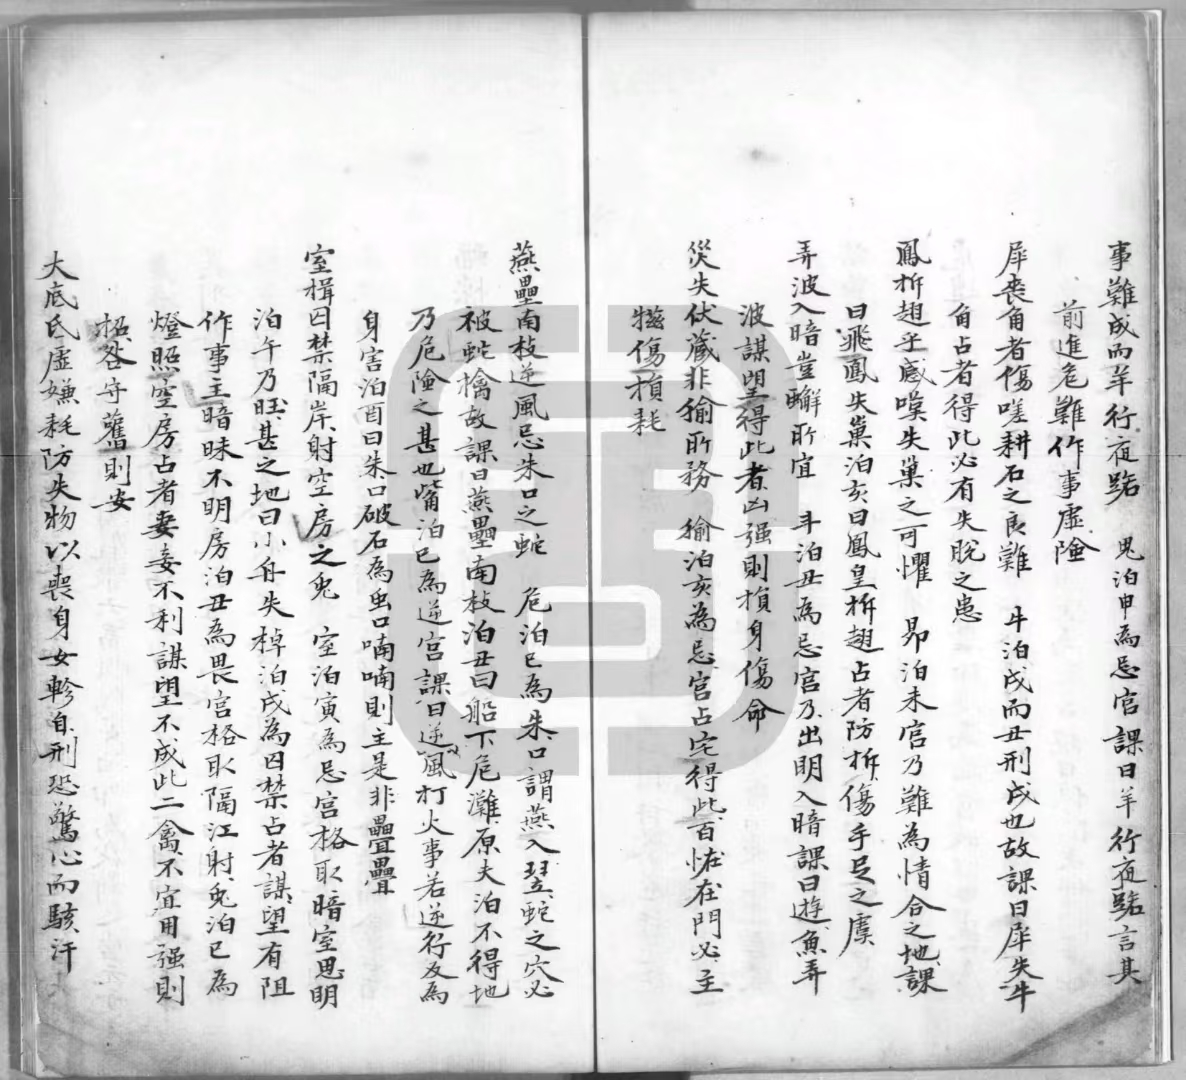 事難成而羊行夜路　鬼泊申為忌官課曰羊行夜路言其
前進危難作事虛險
犀丧角者傷嗟耕石之良難　牛泊戌而丑刑戌也故課曰犀失牛
角占者得此必有失脫之患
鳳折翅乎感嘆失巢之可懼　昴泊未官乃難為情合之地課
曰飛鳳失巢泊亥曰鳳皇折翅占者防折傷手足之虞
弄波入暗豈觧所宜　斗泊丑為忌宮乃出明入暗課曰遊魚弄
波謀望得此者凶强則損身傷命
災失伏藏非㺄所務　㺄泊亥為忌宮占宅得此百恠在門必主
傷損耗
燕壘南枝逆風忌朱口之蛇　危泊巳為朱口謂燕入翌蛇之穴必
被蛇擒故課曰燕壘南枝泊丑曰船下危灘原夫泊不得地
乃危險之甚也觜泊巳為逆宮課曰逆風打火事若逆行反為
身宮泊酉曰朱口破石為虫口喃喃則主是非疊疊
室楫囚禁隔岸射空房之兎　室泊寅為忌宮格取暗室思明
泊午乃旺甚之地曰小舟失棹泊戌為囚禁占者謀望有阻
作事主暗昧不明房泊丑為畏宮格取隔江射兎泊巳為
燈照空房占者妻妾不利謀望不成此二禽不宜用强則
招咎守舊則安
大底氐虛嫌耗防失物以喪身女軫自刑恐驚心而駭汗